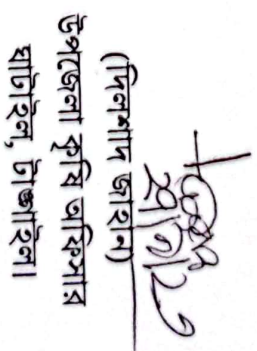 (দিলশাদ জাহান)
উপজেলা কৃষি অফিসার
ঘাটাইল, টাঙ্গাইল।